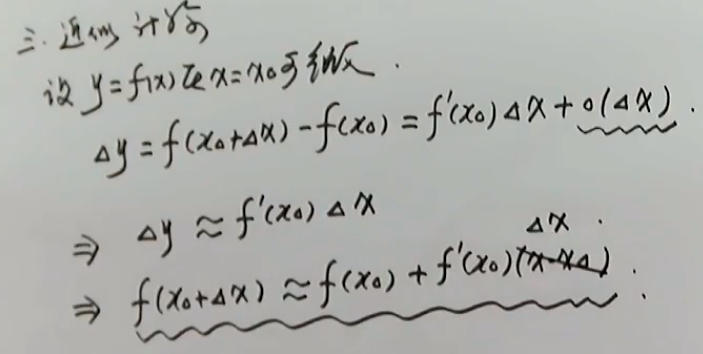 三.近似计算
设 y=f(x)在x=x₀可微.
Δy=f(x₀+Δx)-f(x₀)=f'(x₀)Δx+o(Δx).
⇒ Δy≈f'(x₀)Δx
⇒ f(x₀+Δx)≈f(x₀)+f'(x₀)Δx.